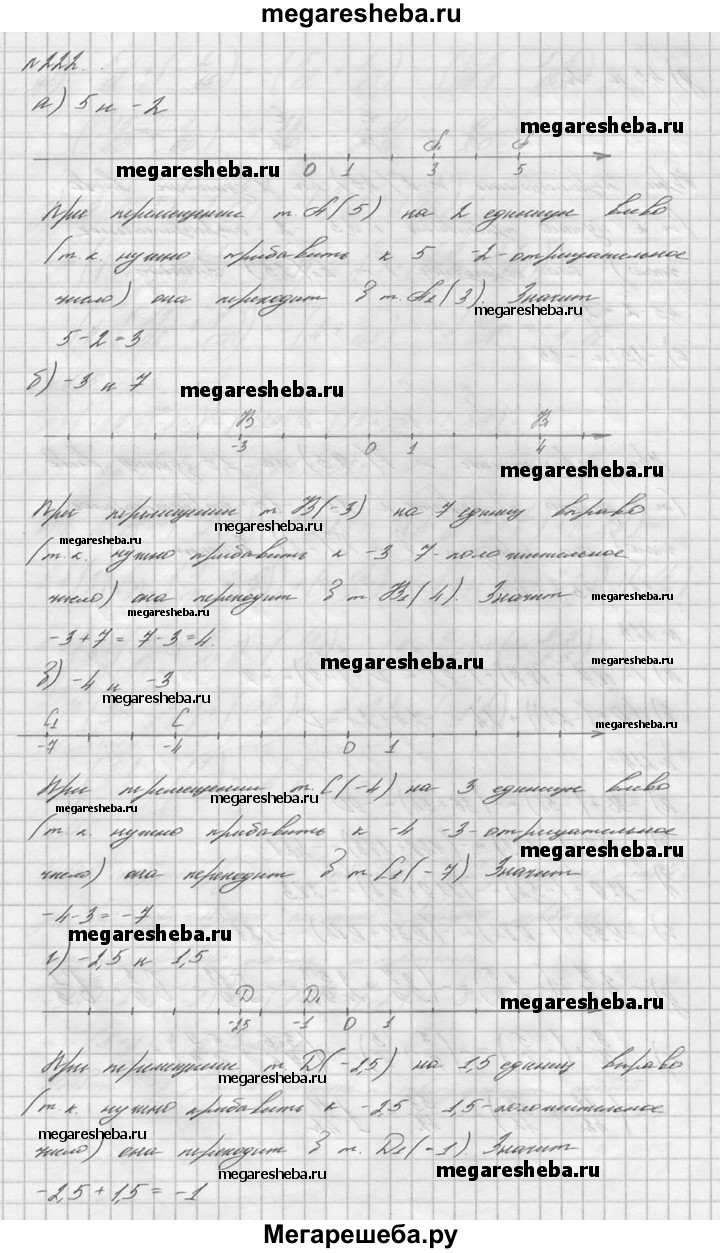 megaresheba.ru
№222.
а) 5 и -2
megaresheba.ru
A₁ A
megaresheba.ru
0 1 3 5
При перемещение т. A(5) на 2 единицы влево
(т.к. нужно прибавить к 5 -2 - отрицательное
число) она переходит в т. A₁(3). Значит
megaresheba.ru
5-2=3
б) -3 и 7
megaresheba.ru
B B₁
-3 0 1 4
megaresheba.ru
При перемещении т. B(-3) на 7 единиц вправо
megaresheba.ru megaresheba.ru
(т.к. нужно прибавить к -3 7 - положительное
число) она переходит в т. B₁(4). Значит
megaresheba.ru
megaresheba.ru
-3+7=7-3=4.
megaresheba.ru megaresheba.ru
в) -4 и -3
megaresheba.ru
C₁ C
megaresheba.ru
-7 -4 0 1
При перемещении т. C(-4) на 3 единицы влево
megaresheba.ru megaresheba.ru
(т.к. нужно прибавить к -4 -3 - отрицательное
megaresheba.ru
число) она переходит в т. C₁(-7). Значит
-4-3=-7
megaresheba.ru
г) -2,5 и 1,5
D D₁
megaresheba.ru
-2,5 -1 0 1
При перемещении т. D(-2,5) на 1,5 единиц вправо
megaresheba.ru
(т.к. нужно прибавить к -2,5 1,5 - положительное
megaresheba.ru
число) она переходит в т. D₁(-1). Значит
megaresheba.ru megaresheba.ru
-2,5+1,5=-1
Мегарешеба.ру